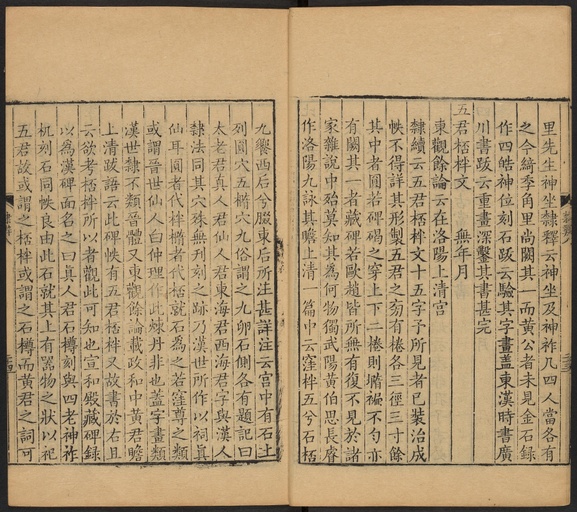 里先生神坐隸釋云神坐及神祚几四人當各有
之今綺季角里尚闕其一而黄公者未見金石録
作四皓神位刻石跋云驗其字畫蓋東漢時書廣
川書跋云重畫深鑿其書甚完
五君桮柈文 無年月
東觀餘論云在洛陽上清宫
隸續云五君桮柈文十五字予所見者已裝治成
帙不得詳其形製五君之旁有棬各三徑三寸餘
其中者圓若碑碣之穿上下二棬則橢褊不匀亦
有闕其一者藏碑若歐趙皆所無有復不見於諸
家雜說中殆莫知其為何物獨武陽黄伯思長睿
作洛陽九詠其瞻上清一篇中云窪柈五兮石桮
九饗西后兮醊東后所注甚詳注云宫中有石土
列圓穴五橢穴九俗謂之九卵石側各有題記曰
太老君真人君仙人君東海君西海君字與漢人
隸法同其穴殊無刋刻之跡乃漢世所作以祠真
仙耳圓者代柈橢者代桮就石為之若窪尊之類
或謂晉世仙人白仲理作此煉丹非也蓋字畫類
漢世隸不類晉體又東觀餘論載政和中黄君瞻
上清跋語云此碑帙有五君桮柈又故書於右且
云欲考桮柈所以者觀此可知也宣和殿藏碑録
以為漢碑面名之曰真人君石樽刻與四老神祚
机刻石同帙良由此石就其上有噐物之狀以祀
五君故或謂之桮柈或謂之石樽而黄君之詞可